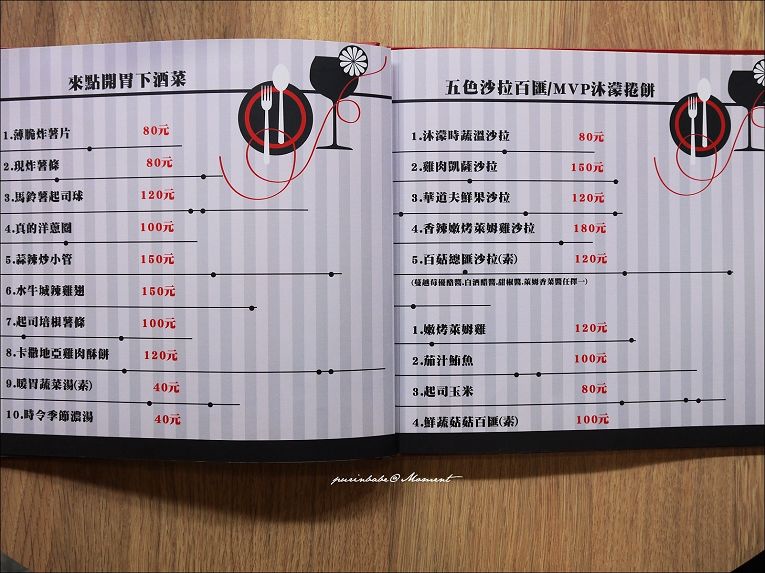 來點開胃下酒菜
1.薄脆炸薯片 80元
2.現炸薯條 80元
3.馬鈴薯起司球 120元
4.真的洋蔥圈 100元
5.蒜辣炒小管 150元
6.水牛城辣雞翅 150元
7.起司培根薯條 100元
8.卡撒地亞雞肉酥餅 120元
9.暖胃蔬菜湯(素) 40元
10.時令季節濃湯 40元
五色沙拉百匯/MVP沐濛捲餅
1.沐濛時蔬溫沙拉 80元
2.雞肉凱薩沙拉 150元
3.華道夫鮮果沙拉 120元
4.香辣嫩烤萊姆雞沙拉 180元
5.百菇總匯沙拉(素) 120元
(蔓越莓優酪醬.白酒醋醬.甜椒醬.萊姆香菜醬任擇一)
1.嫩烤萊姆雞 120元
2.茄汁鮪魚 100元
3.起司玉米 80元
4.鮮蔬菇菇百匯(素) 100元
purinbabe@Moment